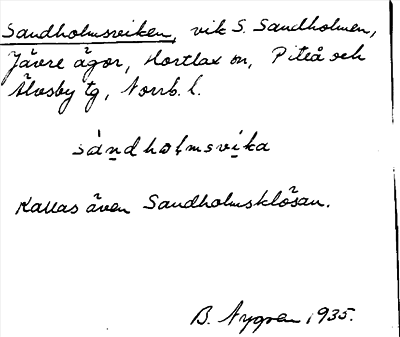 Sandholmsviken, vik S. Sandholmen,
Jävre ägor, Hortlax sn, Piteå och
Älvsby tg, Norrb. l.
sándhol̥msvíka
Kallas även Sandholmsklösan.
B. Nygren 1935.